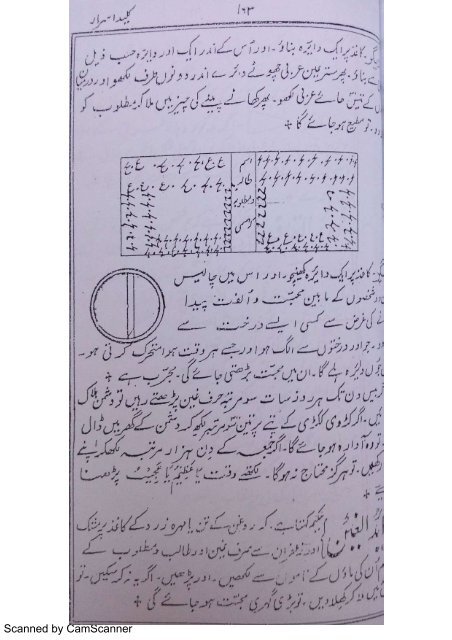 ۱۶۳ کلید اسرار
کاغذ پر ایک دایرہ بناؤ ۔ اور اُس کے اندر ایک اور دایرہ حسب ذیل
بناؤ ۔ پھر ستر عین عربی چھوٹے دائرے اندر دونوں طرف لکھو اور درمیان
کے تیس حائے عربی لکھو ۔ پھر کھانے پینے کی چیز میں ملا کر مطلوب کو
دو ۔ تو مطیع ہو جائے گا
اسم
طالب
و مطلوب
کاغذ پر ایک دایرہ کھینچو ۔ اور اس میں چالیس
شخصوں کے مابین محبّت و اُلفت پیدا
کی غرض سے کسی ایسے درخت سے
جو اور درختوں سے الگ ہو اور جسے ہر وقت ہوا متحرک کرتی ہو ۔
دایرہ ہلے گا ۔ ان میں محبّت بڑھتی جائے گی ۔ مجرّب ہے
دن تک ہر روز سات سو مرتبہ حرف غین پڑھتے رہیں تو دشمن ہلاک
اگر کڑوی ککڑی کے پتے پر تین سو مرتبہ لکھ کر دشمن کے گھر میں ڈال
تو وہ آوارہ ہو جائے گا ۔ اگر جمعہ کے دن ہزار مرتبہ لکھ کر اپنے
رکھیں ۔ تو ہرگز محتاج نہ ہوگا ۔ لکھتے وقت یَا عَظِیْمُ یَا پڑھنا
ہے
حکیم کہتا ہے ۔ کہ روغن کے یا مہرہ زرد کے کاغذ پر مشک
اور زعفران سے حرف غین اور طالب و مطلوب کے
ان کی ماؤں کے ناموں سے لکھیں ۔ اور پڑھیں ۔ اگر یہ نہ کر سکیں ۔ تو
کر کھلا دیں ۔ تو بڑی گہری محبّت ہو جائے گی
Scanned by CamScanner